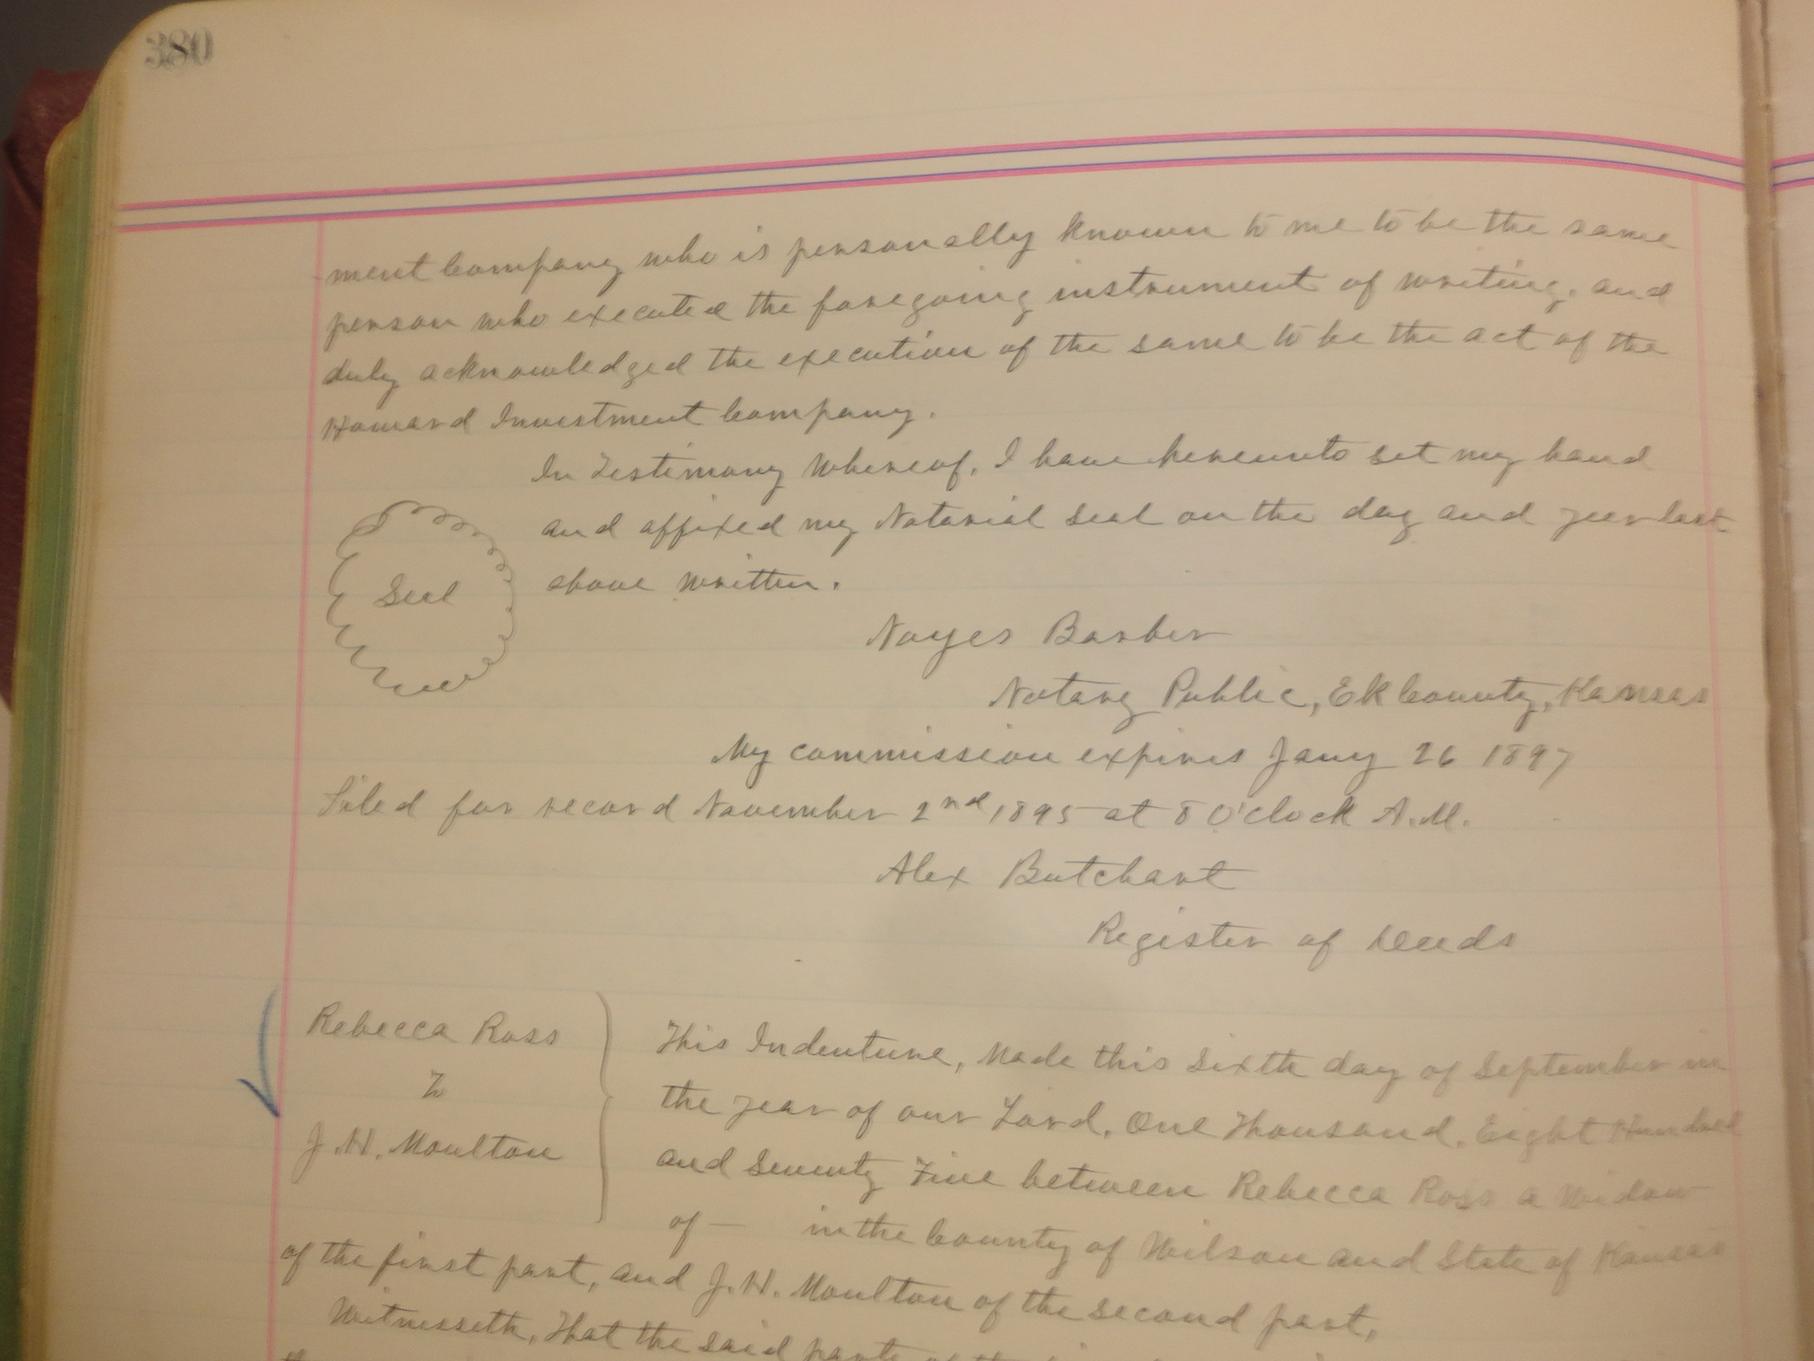 380
ment Company who is personally known to me to be the same
person who executed the foregoing instrument of writing, and
duly acknowledged the execution of the same to be the act of the
Howard Investment Company.
In Testimony Whereof, I have hereunto set my hand
and affixed my Notarial Seal on the day and year last
above written.
Seal
Noyes Barber
Notary Public, Elk County, Kansas
My commission expires Jany 26 1897
Filed for record November 2nd, 1895 at 8 O'clock A.M.
Alex Butchart
Register of Deeds
Rebecca Ross
To
J.H. Moulton
This Indenture, Made this Sixth day of September in
the year of our Lord, One Thousand, Eight Hundred
and Seventy Five between Rebecca Ross a Widow
of — in the County of Wilson and State of Kansas
of the first part, and J.H. Moulton of the second part,
Witnesseth, That the said party of the